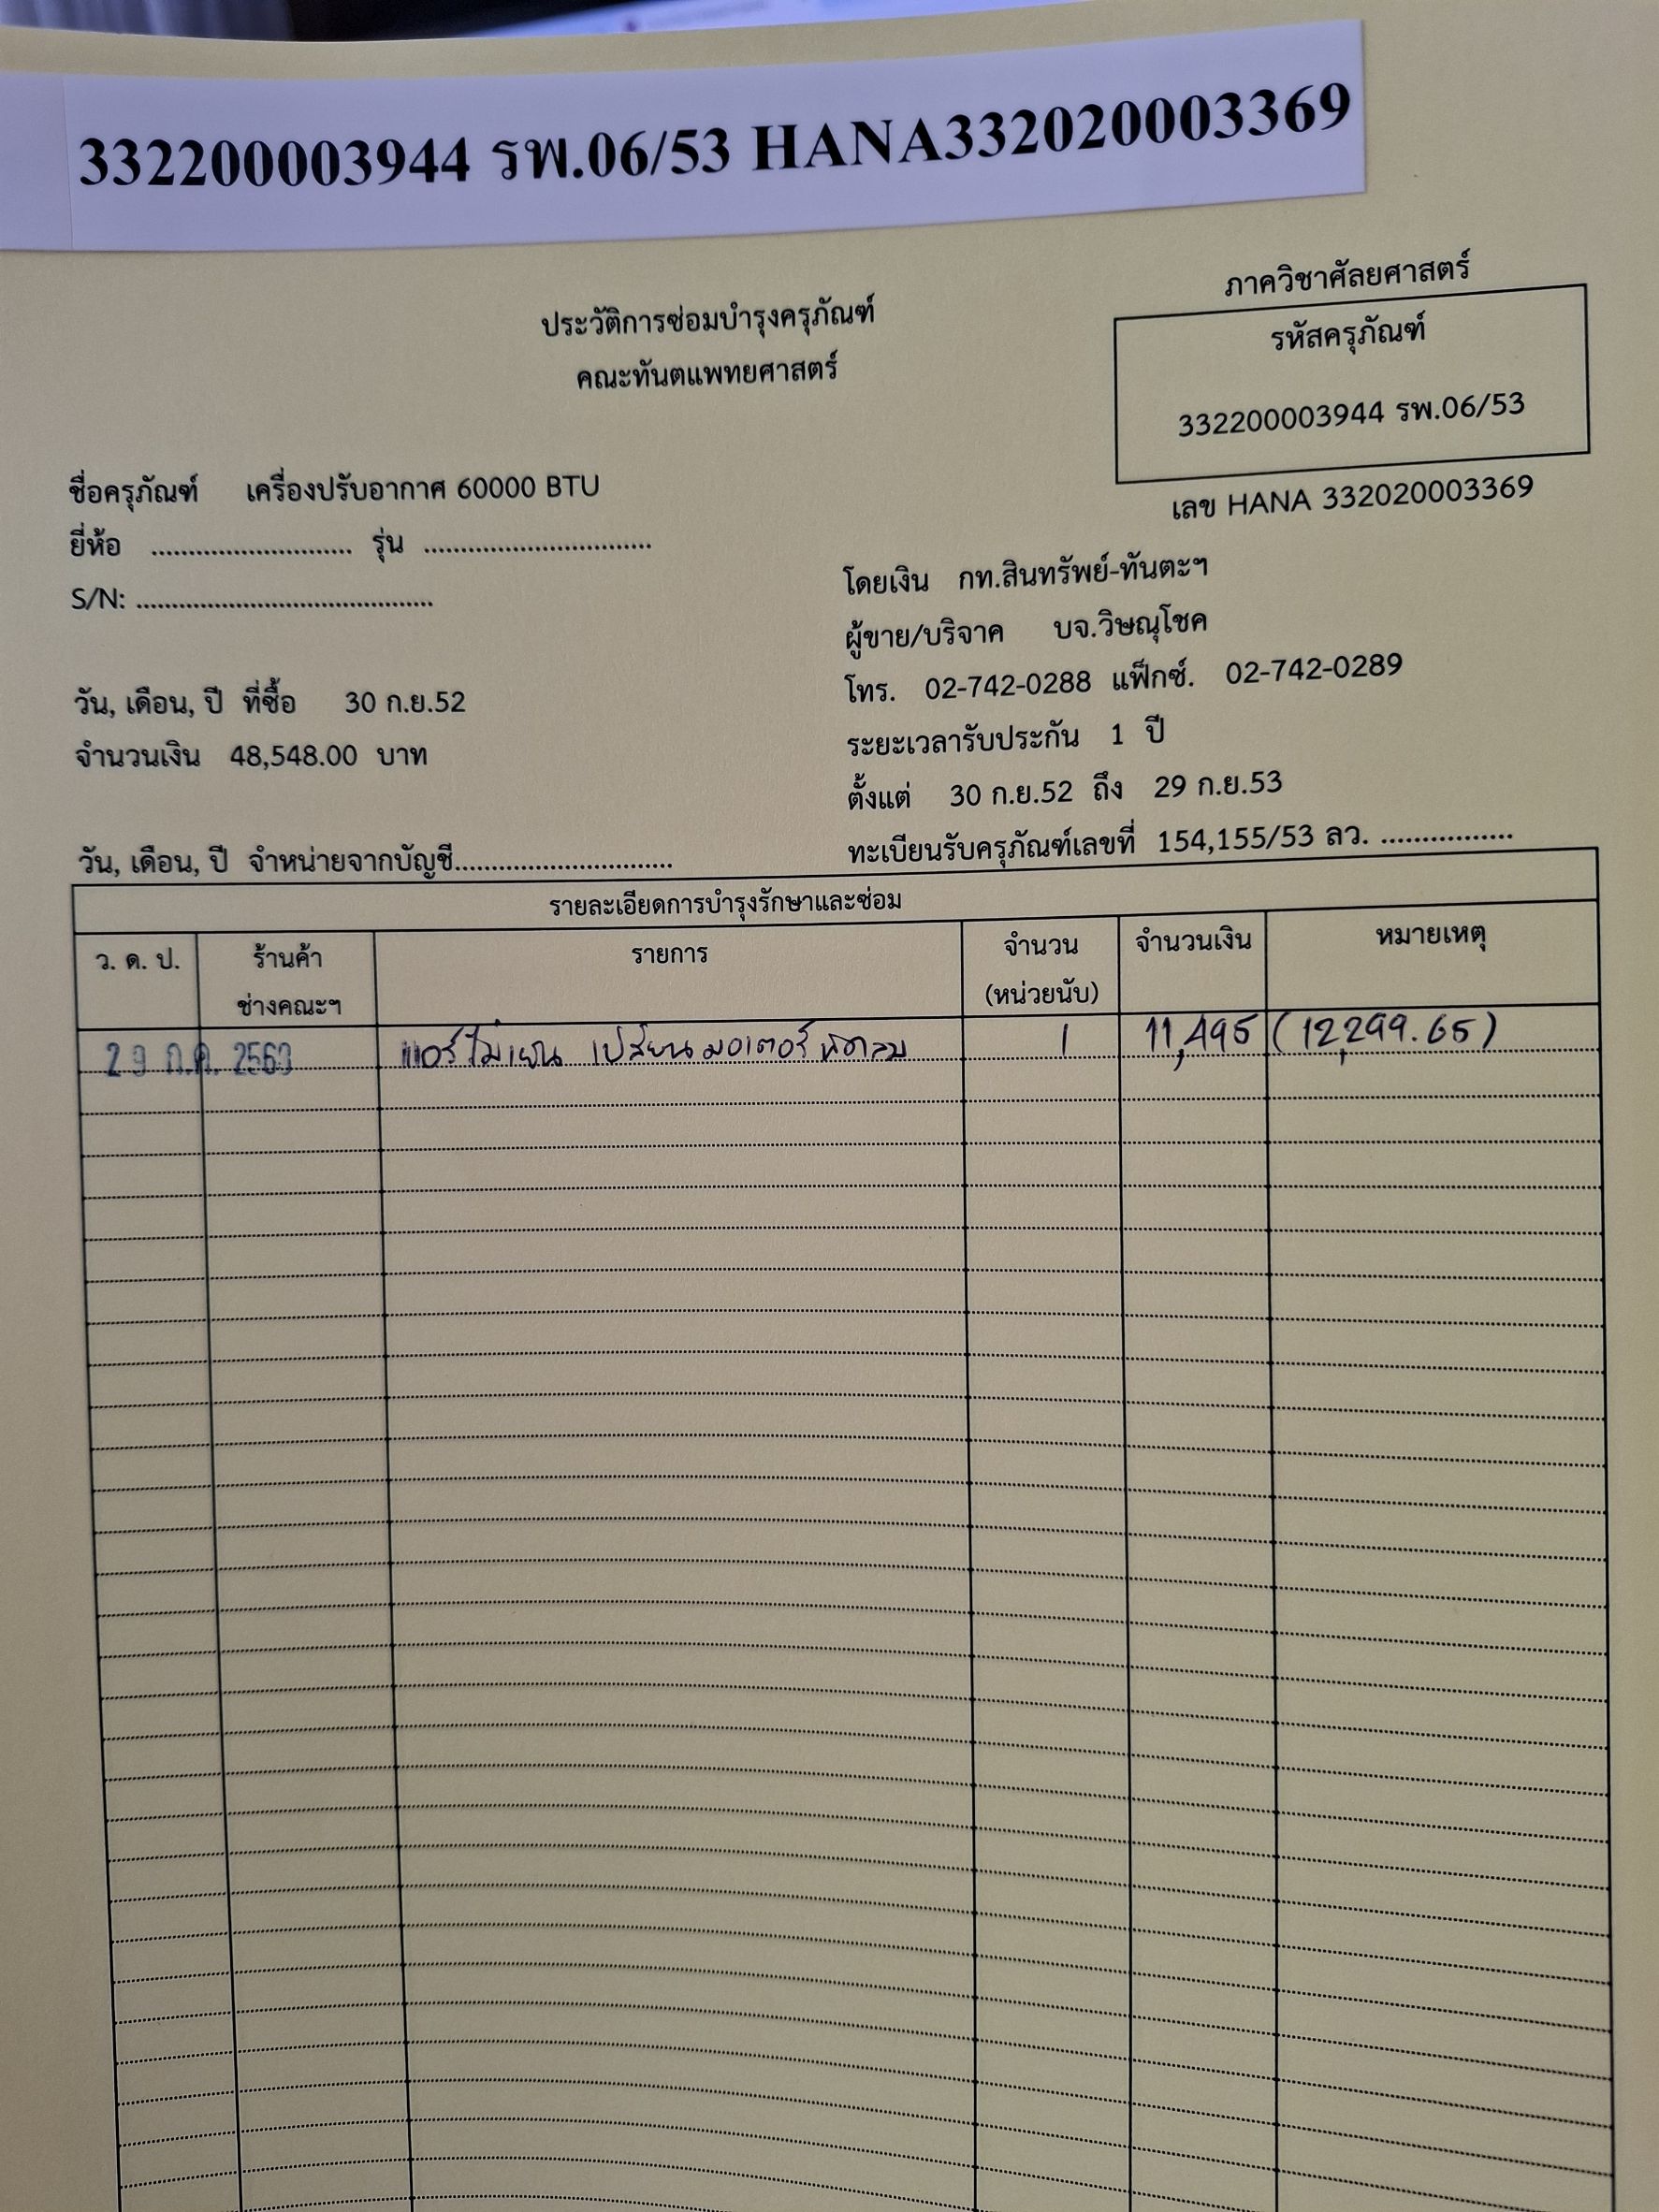 332200003944 รพ.06/53 HANA332020003369
ภาควิชาศัลยศาสตร์
ประวัติการซ่อมบำรุงครุภัณฑ์
คณะทันตแพทยศาสตร์
รหัสครุภัณฑ์
332200003944 รพ.06/53
เลข HANA 332020003369
ชื่อครุภัณฑ์ เครื่องปรับอากาศ 60000 BTU
ยี่ห้อ ........................... รุ่น ...............................
S/N: ........................................
โดยเงิน กท.สินทรัพย์-ทันตะฯ
ผู้ขาย/บริจาค บจ.วิษณุโชค
วัน, เดือน, ปี ที่ซื้อ 30 ก.ย.52
โทร. 02-742-0288 แฟ็กซ์. 02-742-0289
จำนวนเงิน 48,548.00 บาท
ระยะเวลารับประกัน 1 ปี
ตั้งแต่ 30 ก.ย.52 ถึง 29 ก.ย.53
วัน, เดือน, ปี จำหน่ายจากบัญชี.............................
ทะเบียนรับครุภัณฑ์เลขที่ 154,155/53 ลว. ................
รายละเอียดการบำรุงรักษาและซ่อม
ว. ด. ป. ร้านค้า รายการ จำนวน จำนวนเงิน หมายเหตุ
ช่างคณะฯ (หน่วยนับ)
29 ก.ค. 2563 แอร์ไม่เย็น เปลี่ยนมอเตอร์พัดลม 1 11,495 (12,299.65)